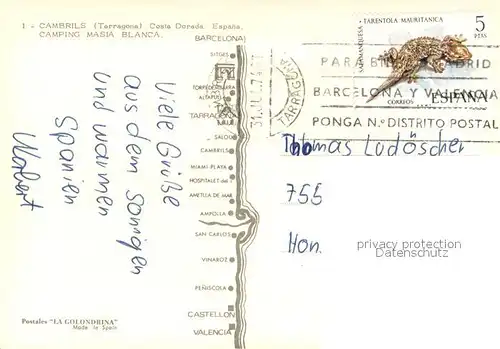 1 - CAMBRILS (Tarragona) Costa Dorada. España.
CAMPING MASIA BLANCA.
BARCELONA
SITGES
TARRAGONA
SALOU
CAMBRILS
MIAMI PLAYA
HOSPITALET del
AMETLLA DE MAR
AMPOLLA
SAN CARLOS
VINAROZ
PEÑISCOLA
CASTELLON
VALENCIA
Viele Grüße
aus dem Sonnigen
und warmen
Spanien
Norbert
Postales "LA GOLONDRINA"
Made in Spain
SALAMANQUESA • TARENTOLA MAURITANICA
5
PTAS
CORREOS
ESPAÑA
TARRAGONA
PARA MADRID
BARCELONA Y VALENCIA
PONGA N.º DISTRITO POSTAL
Thomas Ludöscher
755
Hon.
privacy protection
watermark